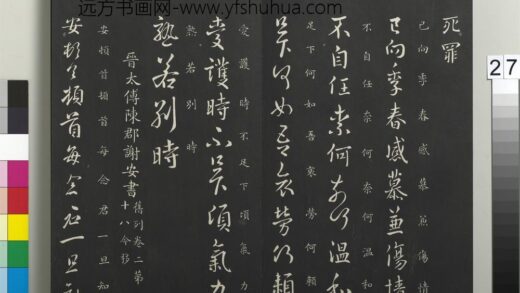 远方书画网-www.yfshuhua.com
死罪
已向季春感慕兼傷情
已向季春感慕兼傷情
不自任奈何奈何温和
不自任奈何奈何温和
足下何如吾哀勞何賴
足下何如吾哀勞何賴
愛護時不足下頃氣力
愛護時不足下頃氣力
熟若别時
熟若别時
晉太傅陳郡謝安書
舊列卷二第十八今移
安頓首頓首每念君一旦知
安頓首頓首每念君一旦知
27